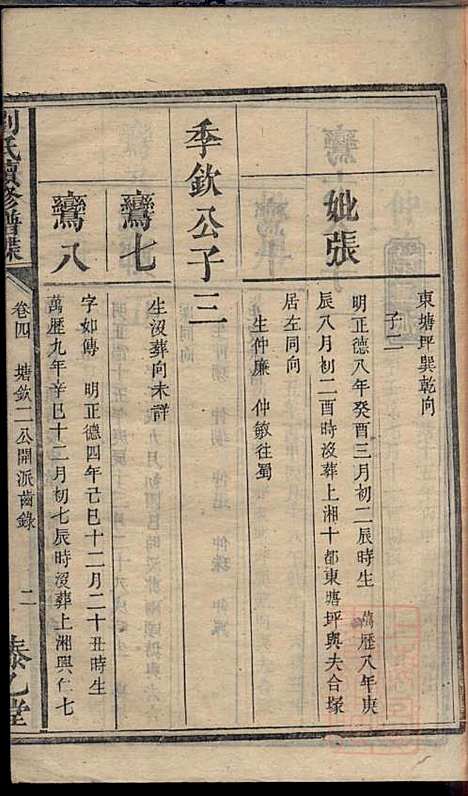 東塘坪巽乾向
子二
妣張
明正德八年癸酉三月初二辰時生 萬歷八年庚
辰八月初二酉時沒葬上湘十都東塘坪與夫合塚
居左同向
生仲廉 仲敏往蜀
季欽公子三
鸞七
生沒葬向未詳
鸞八
字如傳 明正德四年己巳十二月二十丑時生
萬歷九年辛巳十二月初七辰時沒葬上湘興仁七
劉氏續修譜牒
卷四 塘欽二公開派齒錄
二
泰乙堂